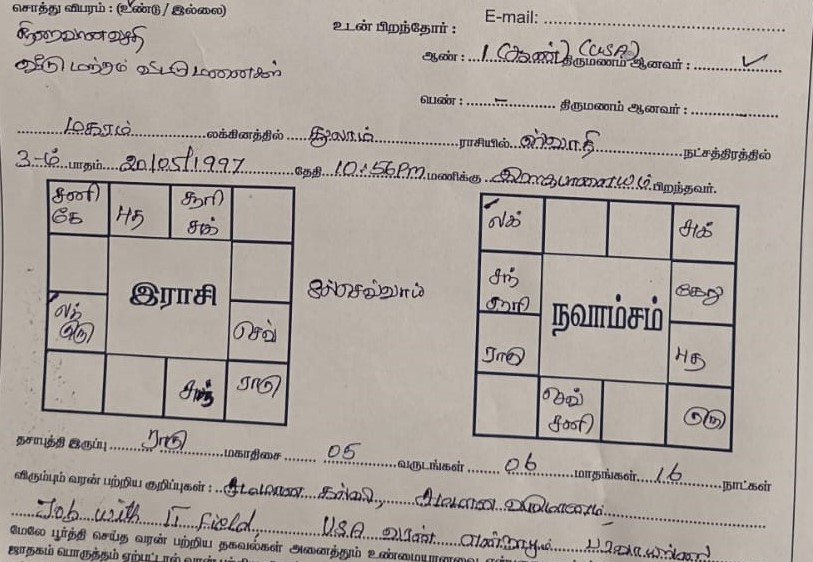 சொத்து விபரம் : (உண்டு / இல்லை)
உடன் பிறந்தோர் :
E-mail:
வீடு மற்றும் வீட்டு மனைகள்
ஆண் : 1 (அண்) (USA) திருமணம் ஆனவர் : ✓
பெண் : - திருமணம் ஆனவர் : -
மகரம் லக்கினத்தில் துலாம் ராசியில் ஸ்வாதி நட்சத்திரத்தில்
3-ம் பாதம் 20/05/1997 தேதி 10:56 Pm மணிக்கு பிறந்தவர்.
சனி கே
புத
சூரி சுக்
லக்
சுக்
இராசி
செவ்வாய்
சந் சூரி
நவாம்சம்
கேது
லக் குரு
செவ்
ராகு
புத
சந்
ராகு
செவ் சனி
குரு
தசாபுத்தி இருப்பு ராகு மகாதிசை 05 வருடங்கள் 06 மாதங்கள் 16 நாட்கள்
விரும்பும் வரன் பற்றிய குறிப்புகள் :
Job with IT field, USA வரன்
மேலே பூர்த்தி செய்த வரன் பற்றிய தகவல்கள் அனைத்தும் உண்மையானவை
ஜாதகம் பொருத்தம் ஏற்பட்டால்